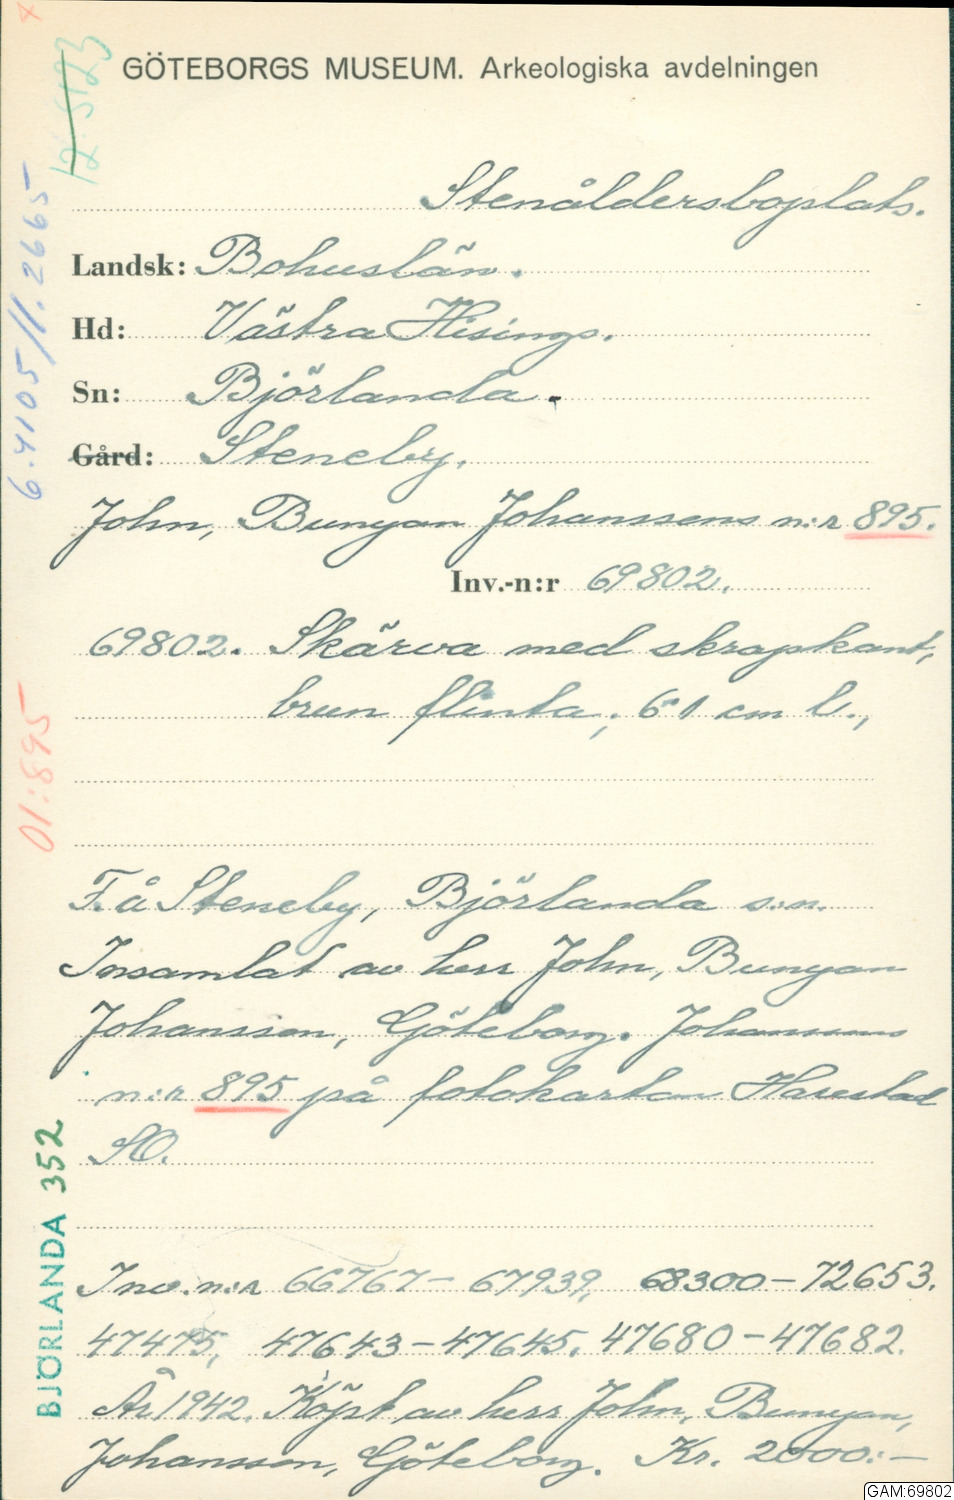 GÖTEBORGS MUSEUM. Arkeologiska avdelningen
12.5123
6.4105/11.2665
Stenåldersboplats.
Landsk: Bohuslän.
Hd: Västra Hisings.
Sn: Björlanda.
Gård: Steneby.
John, Bunyan Johanssons n:r 895.
Inv.-n:r 69802.
69802. Skärva med skrapkant,
brun flinta; 61 cm l.,
01:895
F. å Steneby, Björlanda s:n.
Insamlat av herr John, Bunyan
Johansson, Göteborg. Johanssons
n:r 895 på fotokartan Harestad
SO.
BJÖRLANDA 352
Inv. n:r 66767- 67939, 68300-72653.
47475, 47643-47645. 47680-47682.
År 1942. Köpt av herr John, Bunyan,
Johansson, Göteborg. Kr. 2000:-
GAM:69802